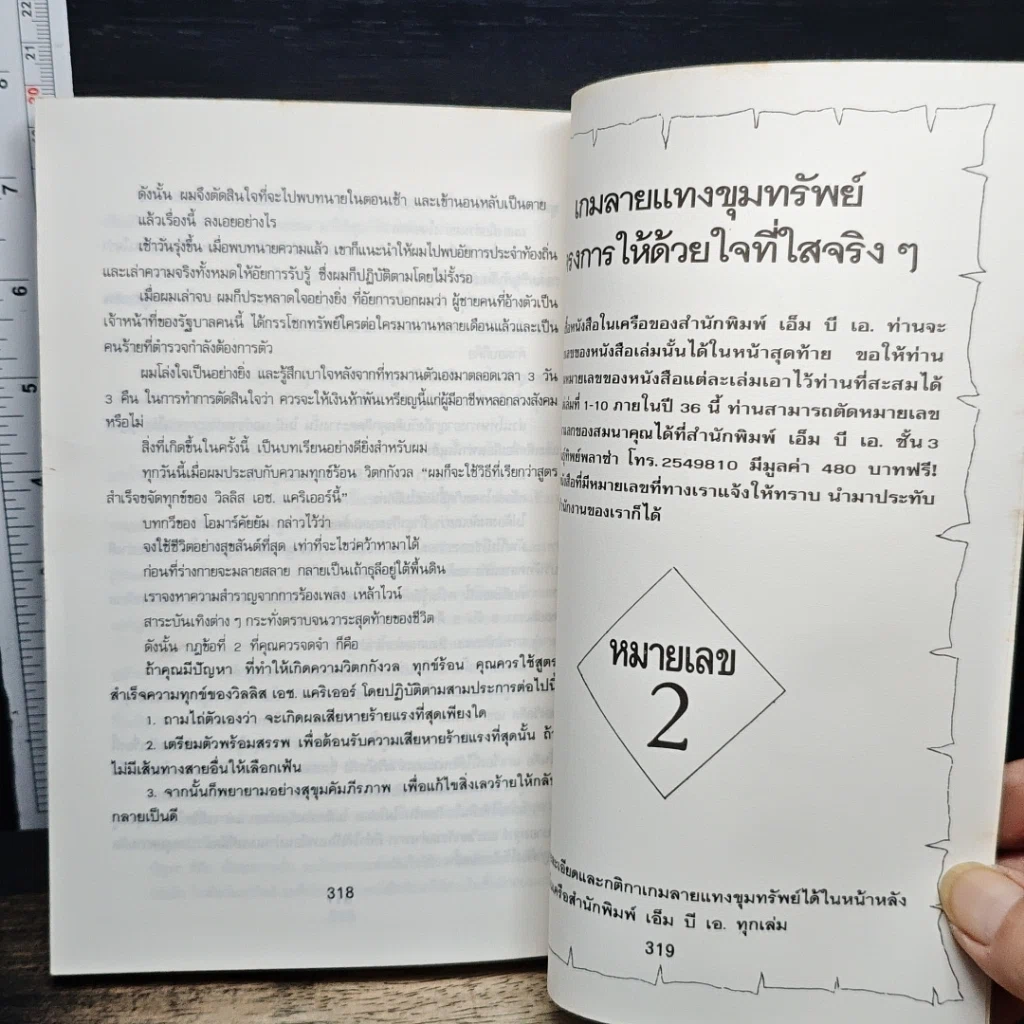 ดังนั้น ผมจึงตัดสินใจที่จะไปพบทนายในตอนเช้า และเข้านอนหลับเป็นตาย
แล้วเรื่องนี้ ลงเอยอย่างไร
เช้าวันรุ่งขึ้น เมื่อพบทนายความแล้ว เขาก็แนะนำให้ผมไปพบอัยการประจำท้องถิ่น
และเล่าความจริงทั้งหมดให้อัยการรับรู้ ซึ่งผมก็ปฏิบัติตามโดยไม่รั้งรอ
เมื่อผมเล่าจบ ผมก็ประหลาดใจอย่างยิ่ง ที่อัยการบอกผมว่า ผู้ชายคนที่อ้างตัวเป็น
เจ้าหน้าที่ของรัฐบาลคนนี้ ได้กรรโชกทรัพย์ใครต่อใครมานานหลายเดือนแล้วและเป็น
คนร้ายที่ตำรวจกำลังต้องการตัว
ผมโล่งใจเป็นอย่างยิ่ง และรู้สึกเบาใจหลังจากที่ทรมานตัวเองมาตลอดเวลา 3 วัน
3 คืน ในการทำการตัดสินใจว่า ควรจะให้เงินห้าพันเหรียญนี้แก่ผู้มีอาชีพหลอกลวงสังคม
หรือไม่
สิ่งที่เกิดขึ้นในครั้งนี้ เป็นบทเรียนอย่างดียิ่งสำหรับผม
ทุกวันนี้เมื่อผมประสบกับความทุกข์ร้อน วิตกกังวล “ผมก็จะใช้วิธีที่เรียกว่าสูตร
สำเร็จขจัดทุกข์ของ วิลลิส เอช. แคริเออร์นี้”
บทกวีของ โอมาร์คัยยัม กล่าวไว้ว่า
จงใช้ชีวิตอย่างสุขสันต์ที่สุด เท่าที่จะไขว่คว้าหามาได้
ก่อนที่ร่างกายจะมลายสลาย กลายเป็นเถ้าธุลีอยู่ใต้พื้นดิน
เราจงหาความสำราญจากการร้องเพลง เหล้าไวน์
สาระบันเทิงต่าง ๆ กระทั่งตราบจนวาระสุดท้ายของชีวิต
ดังนั้น กฎข้อที่ 2 ที่คุณควรจดจำ ก็คือ
ถ้าคุณมีปัญหา ที่ทำให้เกิดความวิตกกังวล ทุกข์ร้อน คุณควรใช้สูตร
สำเร็จความทุกข์ของวิลลิส เอช. แคริเออร์ โดยปฏิบัติตามสามประการต่อไปนี้
1. ถามไถ่ตัวเองว่า จะเกิดผลเสียหายร้ายแรงที่สุดเพียงใด
2. เตรียมตัวพร้อมสรรพ เพื่อต้อนรับความเสียหายร้ายแรงที่สุดนั้น ถ้า
ไม่มีเส้นทางสายอื่นให้เลือกเฟ้น
3. จากนั้นก็พยายามอย่างสุขุมคัมภีรภาพ เพื่อแก้ไขสิ่งเลวร้ายให้กลับ
กลายเป็นดี
318
เกมลายแทงขุมทรัพย์
รงการให้ด้วยใจที่ใสจริง ๆ
หนังสือในเครือของสำนักพิมพ์ เอ็ม บี เอ. ท่านจะ
เลขของหนังสือเล่มนั้นได้ในหน้าสุดท้าย ขอให้ท่าน
หมายเลขของหนังสือแต่ละเล่มเอาไว้ท่านที่สะสมได้
เล่มที่ 1-10 ภายในปี 36 นี้ ท่านสามารถตัดหมายเลข
แลกของสมนาคุณได้ที่สำนักพิมพ์ เอ็ม บี เอ. ชั้น 3
ทิพย์พลาซ่า โทร. 2549810 มีมูลค่า 480 บาทฟรี!
สือที่มีหมายเลขที่ทางเราแจ้งให้ทราบ นำมาประทับ
นักงานของเราก็ได้
หมายเลข
2
ละเอียดและกติกาเกมลายแทงขุมทรัพย์ได้ในหน้าหลัง
เครือสำนักพิมพ์ เอ็ม บี เอ. ทุกเล่ม
319
7
6
5
4
22
21
20